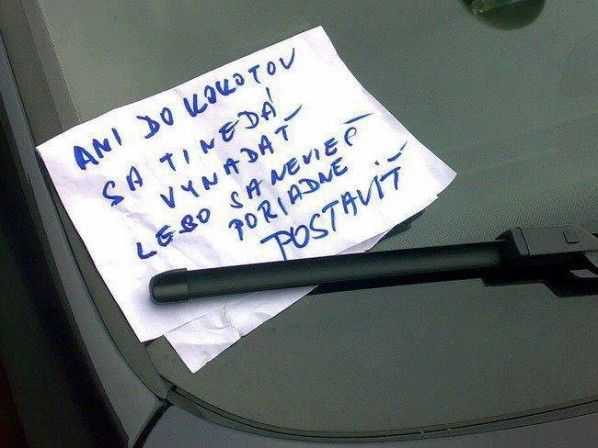 ANI DO KOKOTOV
SA TI NEDÁ
VYNADAŤ
LEBO SA NEVIEŠ
PORIADNE
POSTAVIŤ